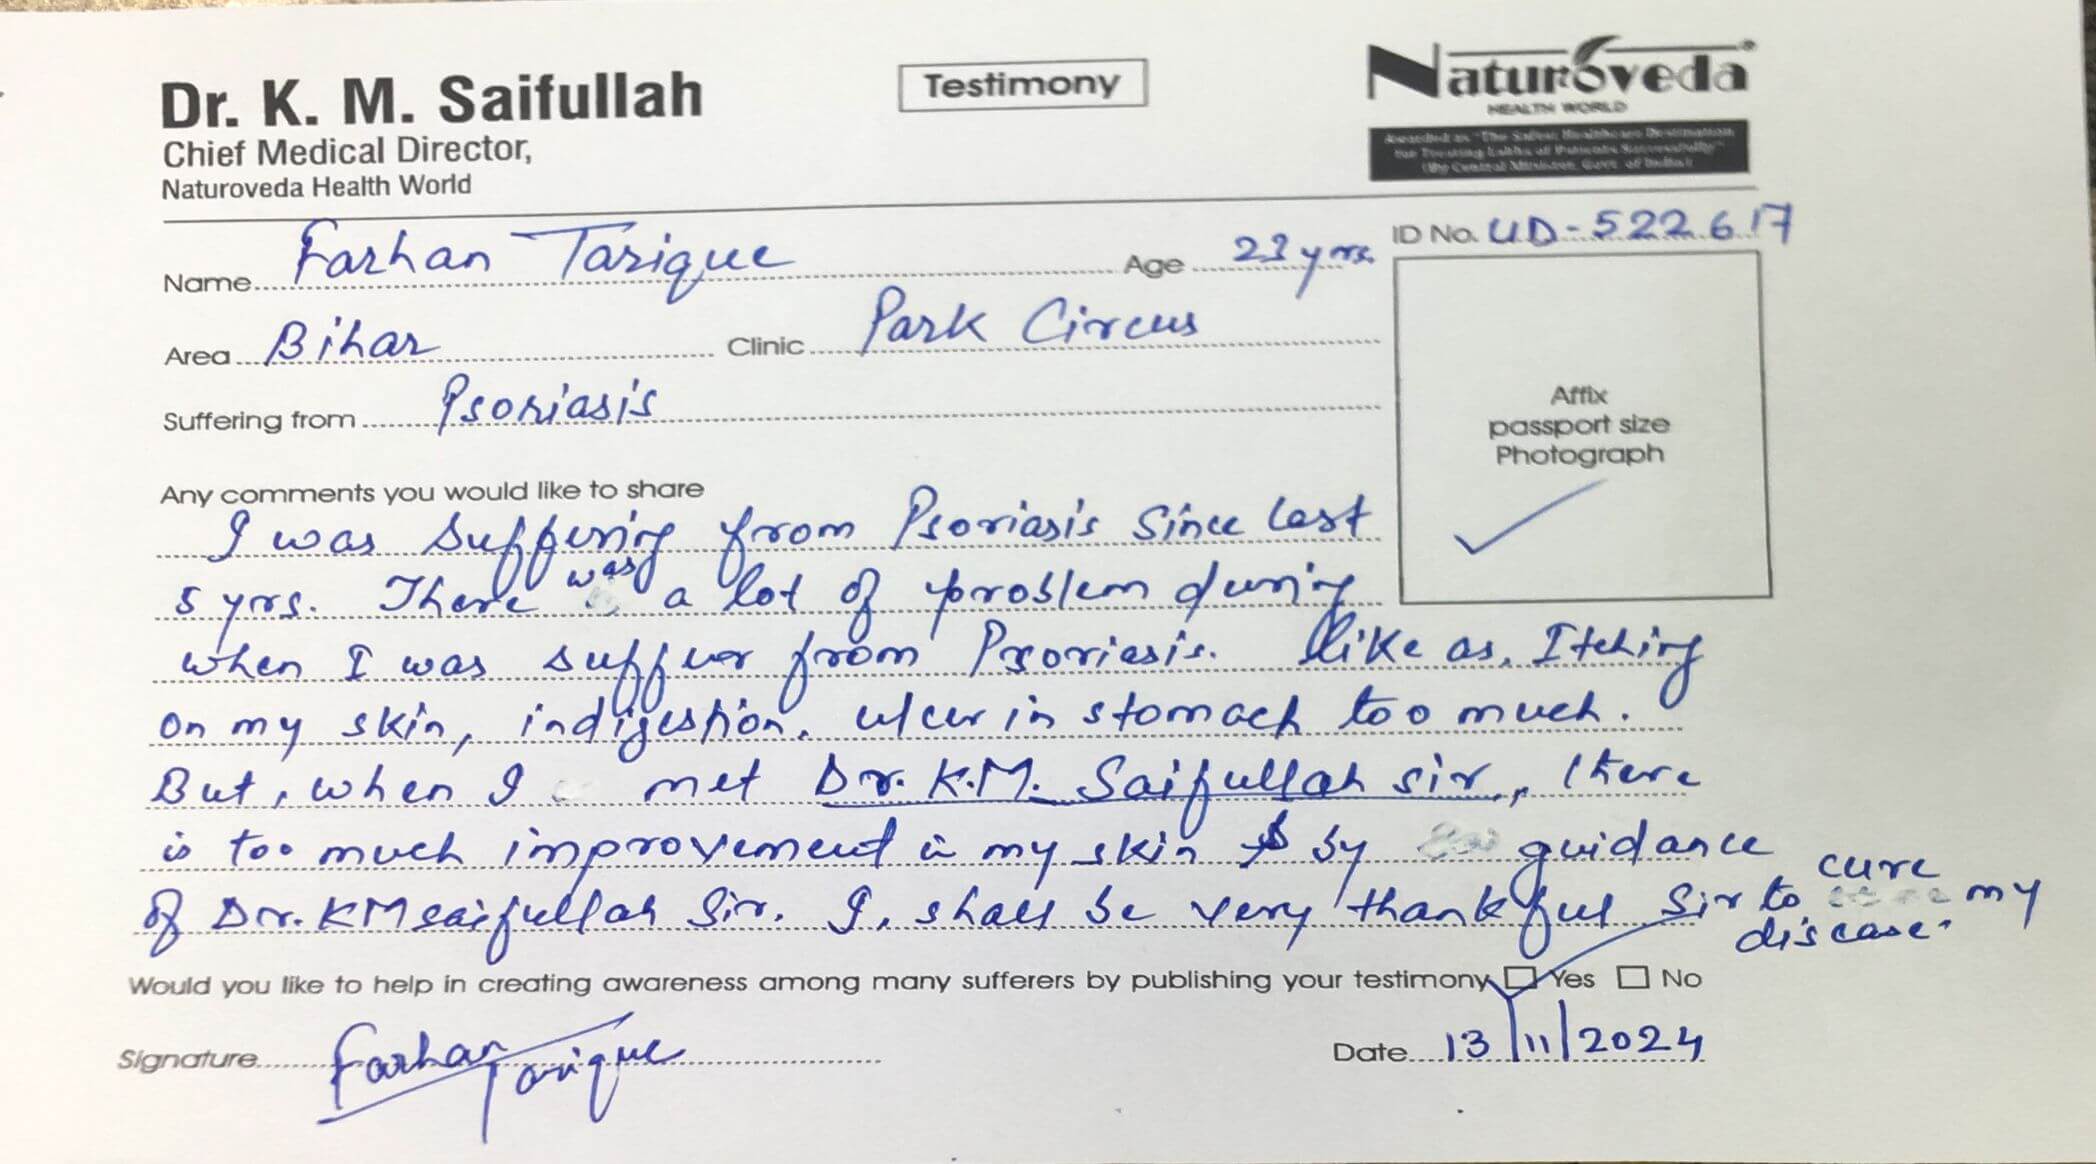 Dr. K. M. Saifullah
Chief Medical Director,
Naturoveda Health World
Testimony
Naturoveda
HEALTH WORLD
Awarded as "The Safest Healthcare Destination
for Treating Lakhs of Patients Successfully"
(By Central Minister, Govt. of India)
ID No. UD-522617
Name Farhan Tarique Age 23 yrs.
Area Bihar Clinic Park Circus
Suffering from Psoriasis
Affix
passport size
Photograph
Any comments you would like to share
I was suffering from Psoriasis since last
5 yrs. There was a lot of problem during
when I was suffer from Psoriasis. like as, Itching
on my skin, indigestion, ulcer in stomach too much.
But, when I met Dr. K.M. Saifullah sir, there
is too much improvement in my skin by guidance
of Dr. KM saifullah Sir. I, shall be very thankful Sir to cure my
disease.
Would you like to help in creating awareness among many sufferers by publishing your testimony Yes No
Signature Farhan Tarique Date 13/11/2024